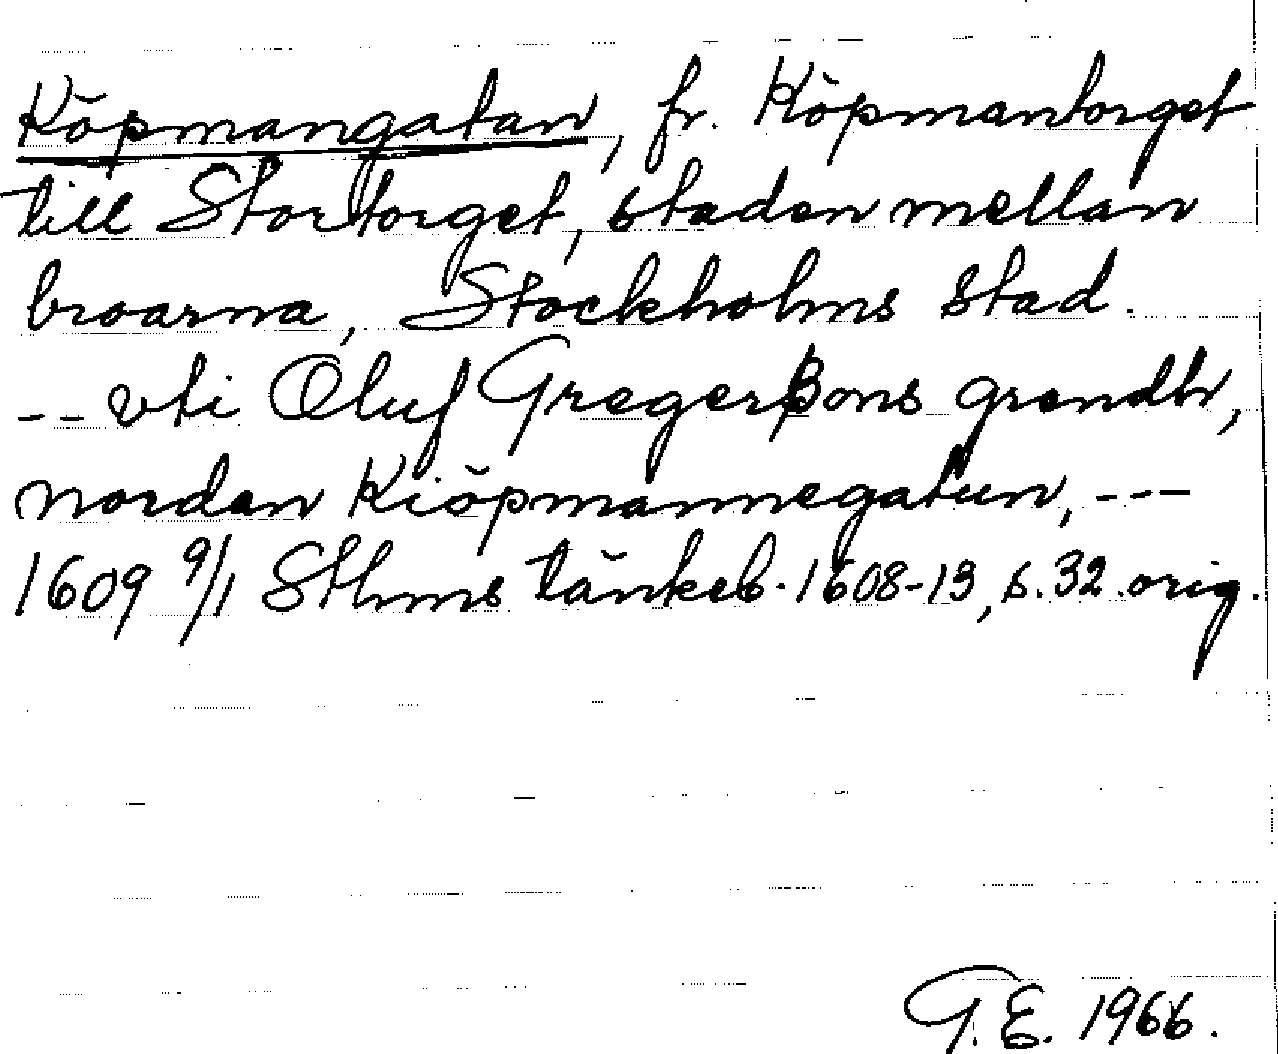 Köpmangatan, fr. Köpmantorget
till Stortorget, staden mellan
broarna, Stockholms stad.
-- vti Oluf Gregerßons grendh,
nordan Kiöpmannegatun, ---
1609 9/1 Sthms tänkeb. 1608-13, s. 32. orig.
G. E. 1966.